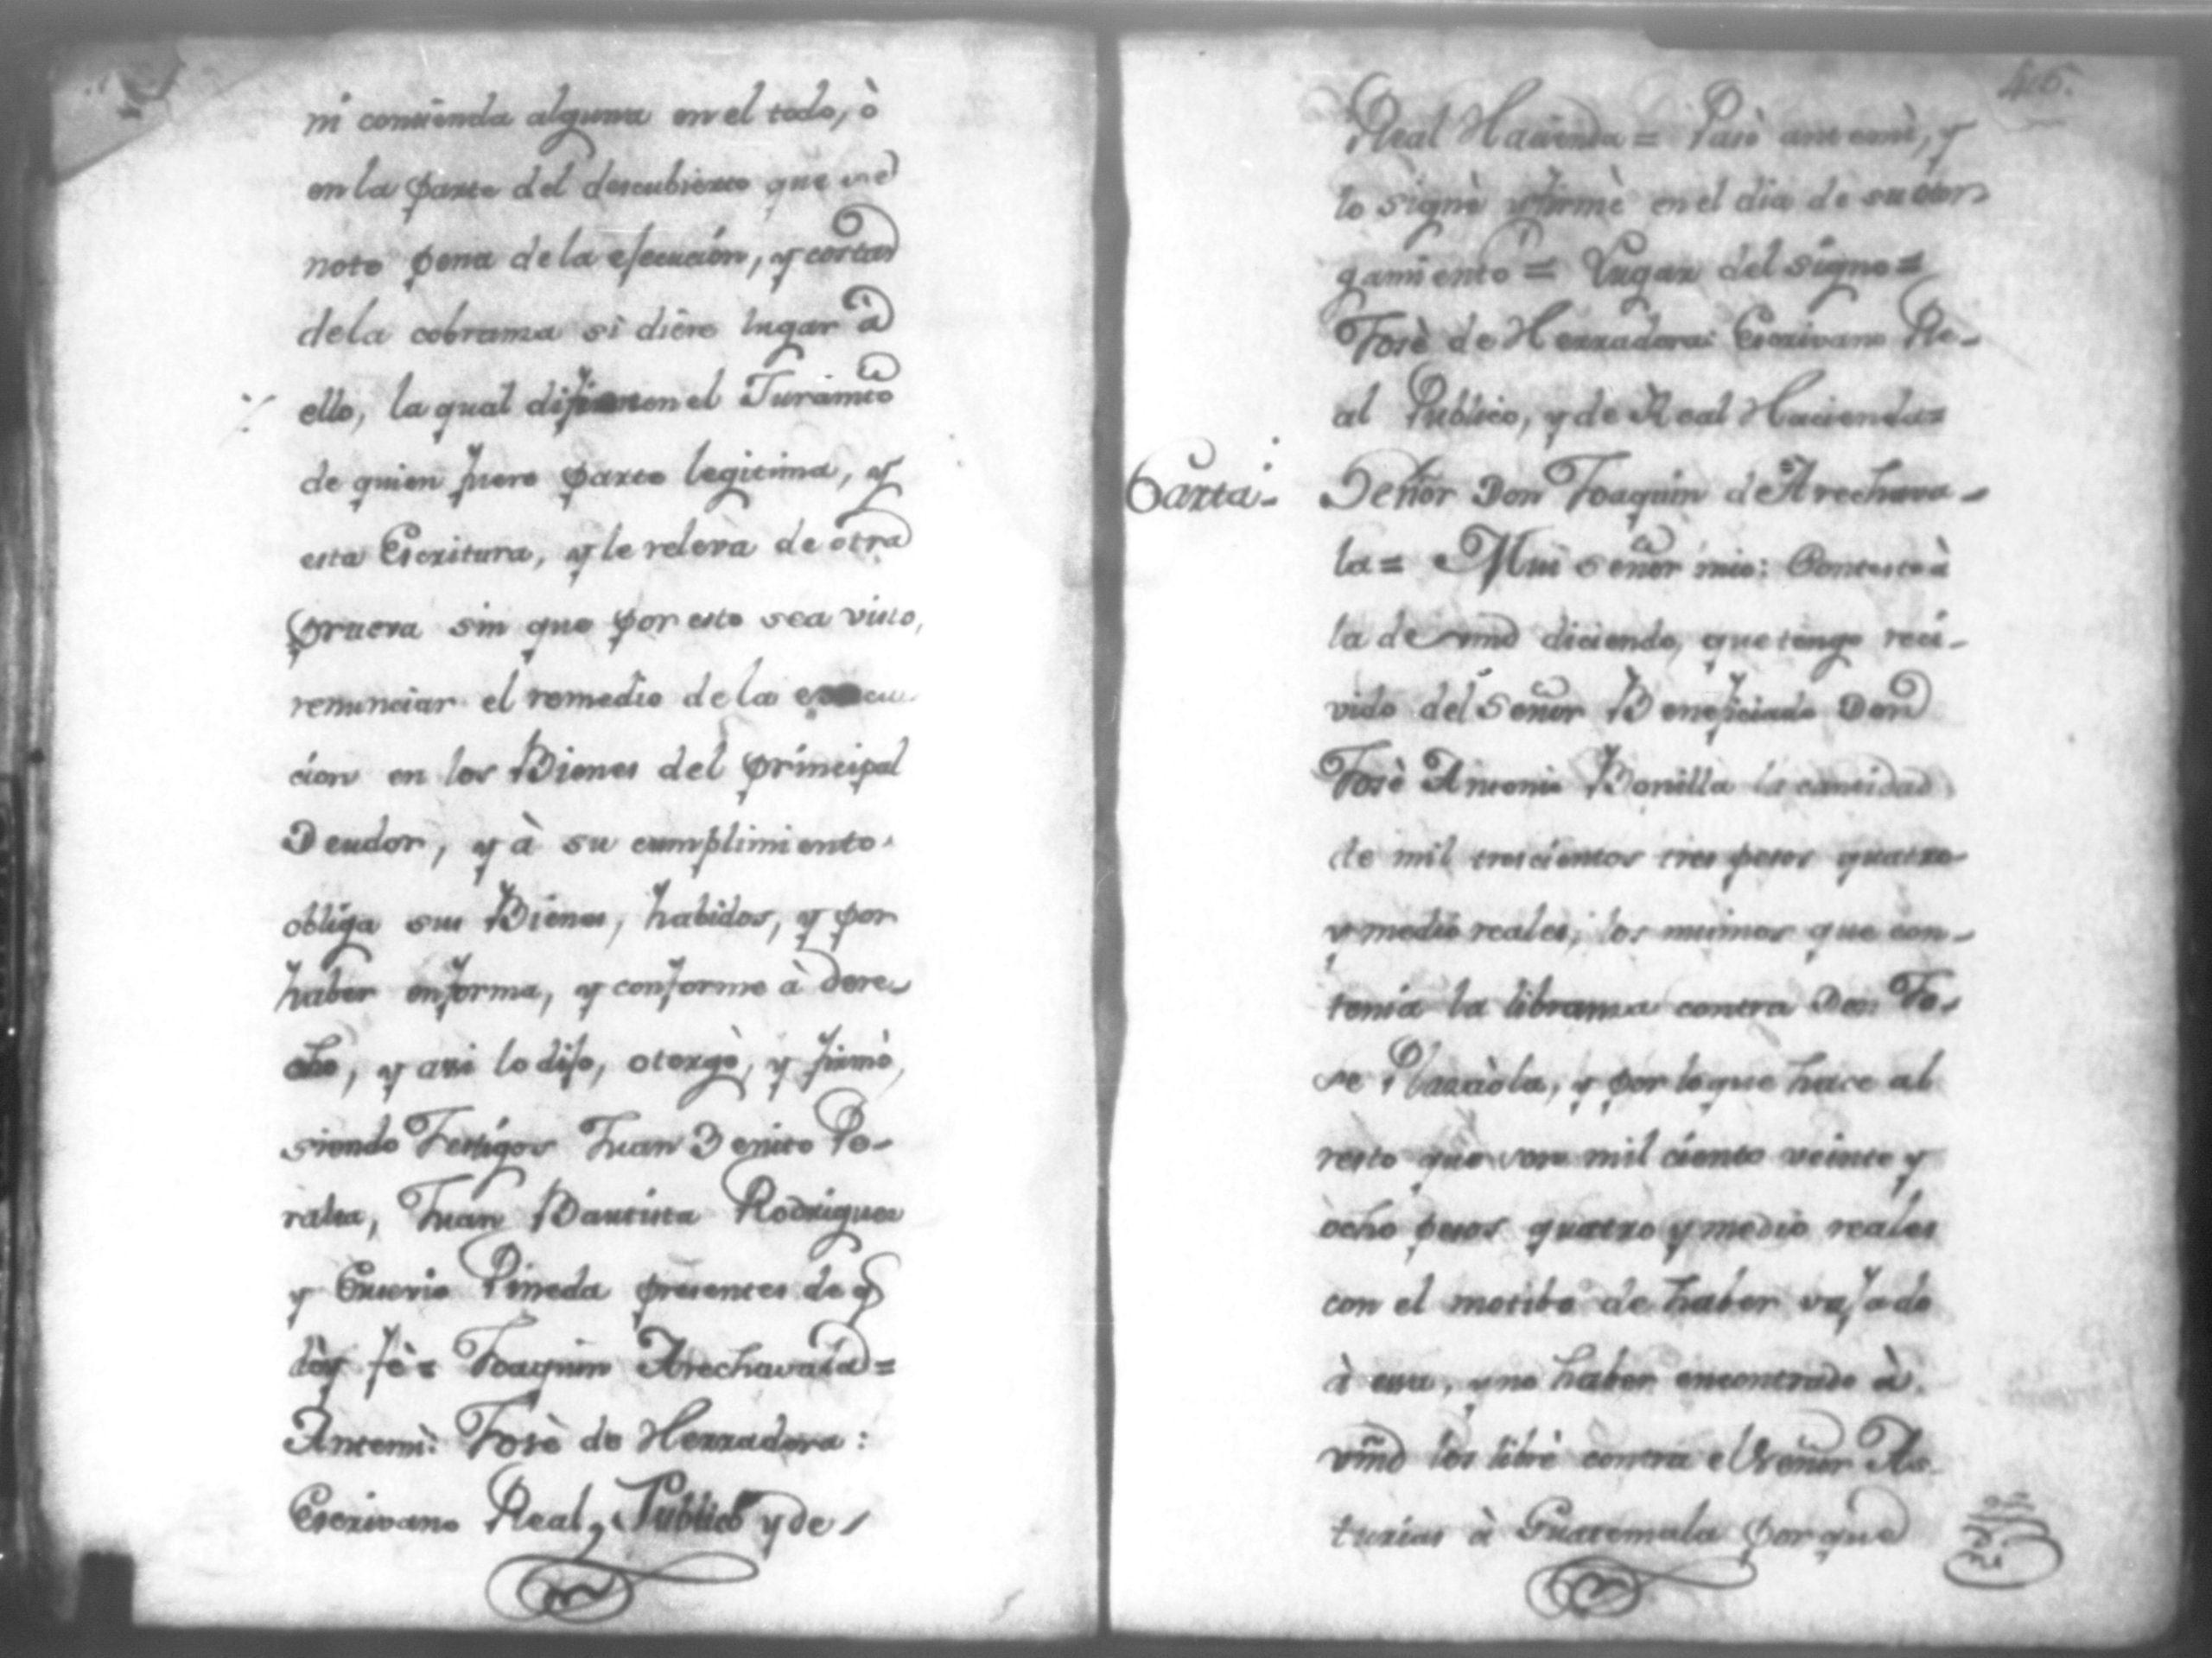 ni contienda alguna en el todo, ò
en la parte del descubierto que se
note pena de la ejecucion, y costas
de la cobranza si diere lugar à
ello, la qual difiere en el Juramto
de quien fuere parte legitima, y
esta Escritura, y le releva de otra
prueva sin que por esto sea visto,
renunciar el remedio de la execu
cion en los Bienes del principal
Deudor, y à su cumplimiento
obliga sus Bienes, habidos, y por
haber en forma, y conforme à dere-
cho, y assi lo dijo, otorgò, y firmò,
siendo Testigos Juan Benito Pe-
ralta, Juan Bautista Rodriguez
y Eusevio Pineda presentes de q
dòy fè = Joaquin Arechavala =
Antemi: Josè de Herradora:
Escrivano Real, Publico y de
Real Hacienda = Pasò antemi, y
lo signè y firmè en el dia de su otor
gamiento = Lugar del signo =
Josè de Herradora: Escrivano Re-
al Publico, y de Real Hacienda =
Carta. Señor Don Joaquin de Arechava-
la = Mui señor mio: Contesto à
la de vmd diciendo, que tengo reci-
vido del Señor Beneficiado Don
Josè Antonio Bonilla la cantidad
de mil trescientos tres pesos quatro
y medio reales, los mismos que con-
tenia la libranza contra Don Jo-
se Plazaòla, y por lo que hace al
resto que son mil ciento veinte y
ocho pesos quatro y medio reales
con el motibo de haber vajado
à essa, y no haber encontrado à
vmd los librè contra el Señor As-
turias à Guatemala porque